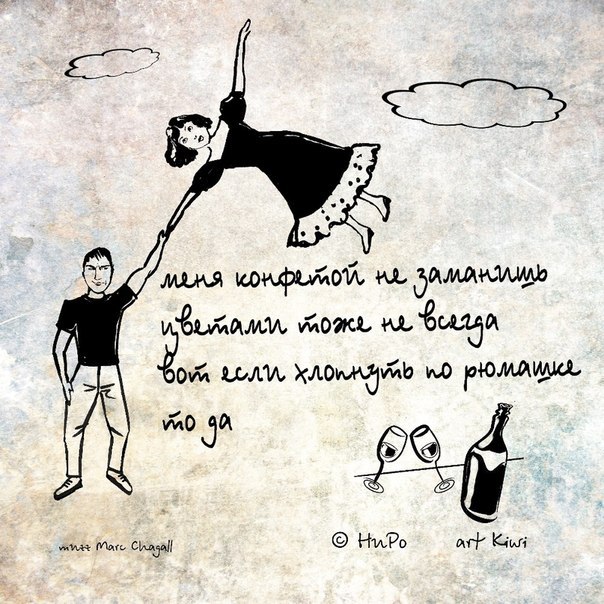 меня конфетой не заманишь
цветами тоже не всегда
вот если хлопнуть по рюмашке
то да
© НиРо art Kiwi
типт Marc Chagall